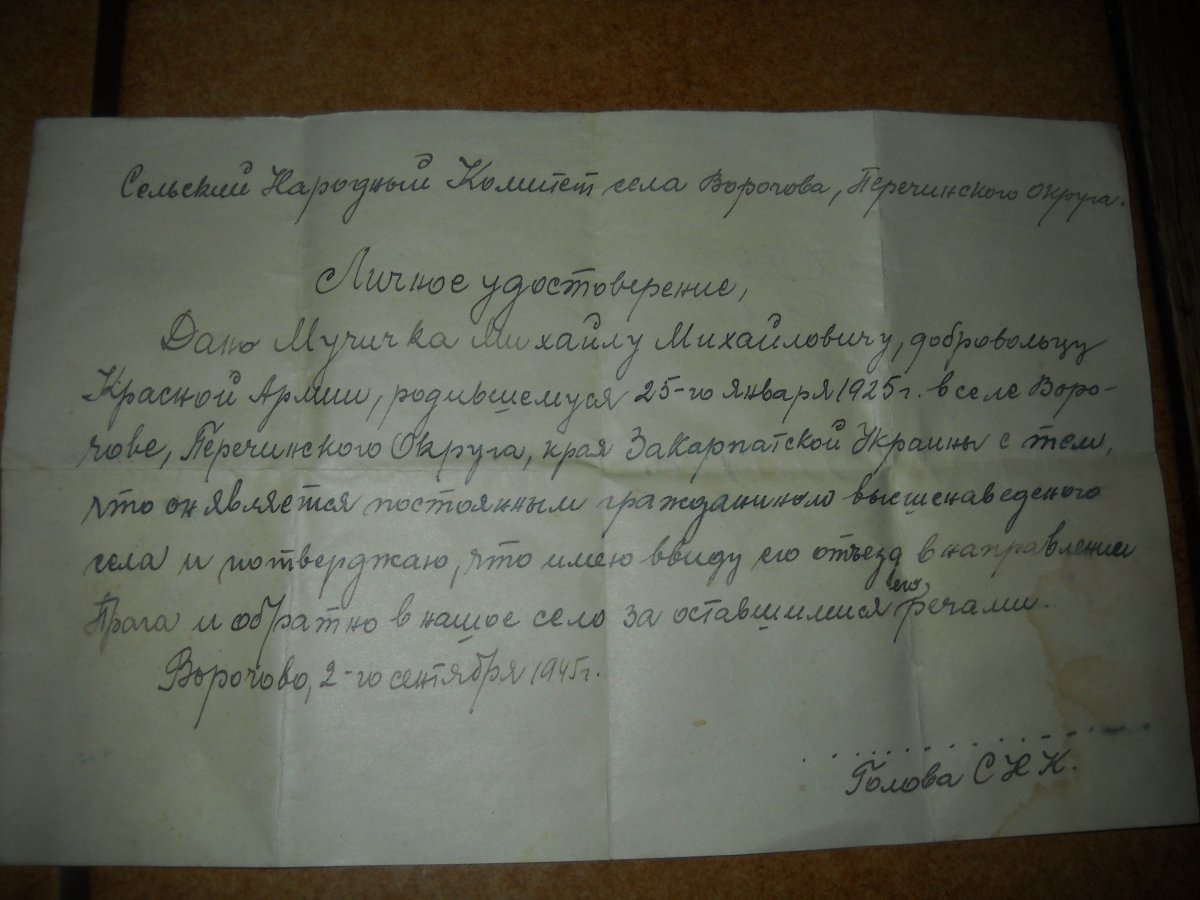 Сельский Народный Комитет села Ворочова, Перечинского округа.
Личное удостоверение,
Дано Мучичка Михайлу Михайловичу, добровольцу
Красной Армии, родившемуся 25-го января 1925 г. в селе Воро-
чове, Перечинского Округа, края Закарпатской Украины с тем,
что он является постоянным гражданином высшенаведеного
села и потверджаю, что имею ввиду его отъезд в направлении
Прага и обратно в нашое село за оставшимися его речами.
Ворочово, 2-го сентября 1945 г.
Голова С Н К.